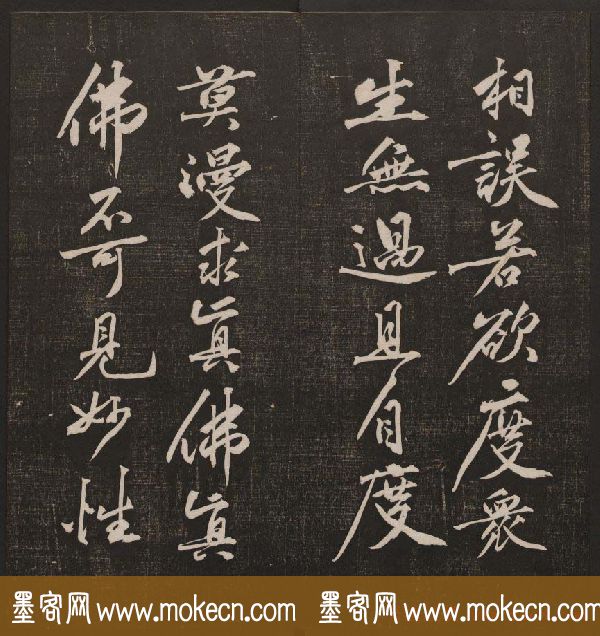 相誤若欲度衆
生無過且自度
莫漫求真佛真
佛不可見妙性
墨客网 www.mokecn.com 墨客网 www.mokecn.com